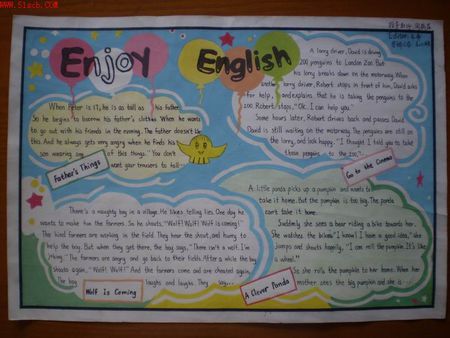 www.51scb.com
Enjoy English
When Peter is 17, he is as tall as his father.
So he begins to borrow his father's clothes when he wants
to go out with his friends in the evning. The father doesn't like
this. And he always gets very angry when he finds his
son wearing any of his things." You don't
want your trousers to fall
Father's Things
A lorry driver, David is driving
200 penguins to London Zoo. But
his lorry breaks down on the motorway. When
another lorry driver, Robert stops in front of him, David asks
for help, and explains that he is taking the penguins to the
zoo. Robert stops, "Ok. I can help you."
Some hours later, Robert drives back and passes David.
David is still waiting on the motorway. The penguins are still on
the lorry, and look happy. "I thought I told you to take
those penguins to the zoo."
Go to the Cinema
There's a naughty boy in a village. He likes telling lies. One day he
wants to make fun the farmers. So he shouts, "Wolf! Wolf! Wolf is coming!"
The kind farmers are working in the field. They hear the shout, and hurry to
help the boy. But when they get there, the boy says, "There isn't a wolf. I'm
joking." The farmers are angry and go back to their fields. After a while the boy
shouts again, "Wolf! Wolf!" And the farmers come and are cheated again.
The boy laughs and laughs. They say...
Wolf is Coming
A little panda picks up a pumpkin and wants to
take it home. But the pumpkin is too big. The panda
can't take it home.
Suddenly she sees a bear riding a bike towards her.
She watches the bike. "I know! I have a good idea." she
jumps and shouts happily, "I can roll the pumpkin. It's like
a wheel."
So she rolls the pumpkin to her home. When her
mother sees the big pumpkin and she is ...
A Clever Panda